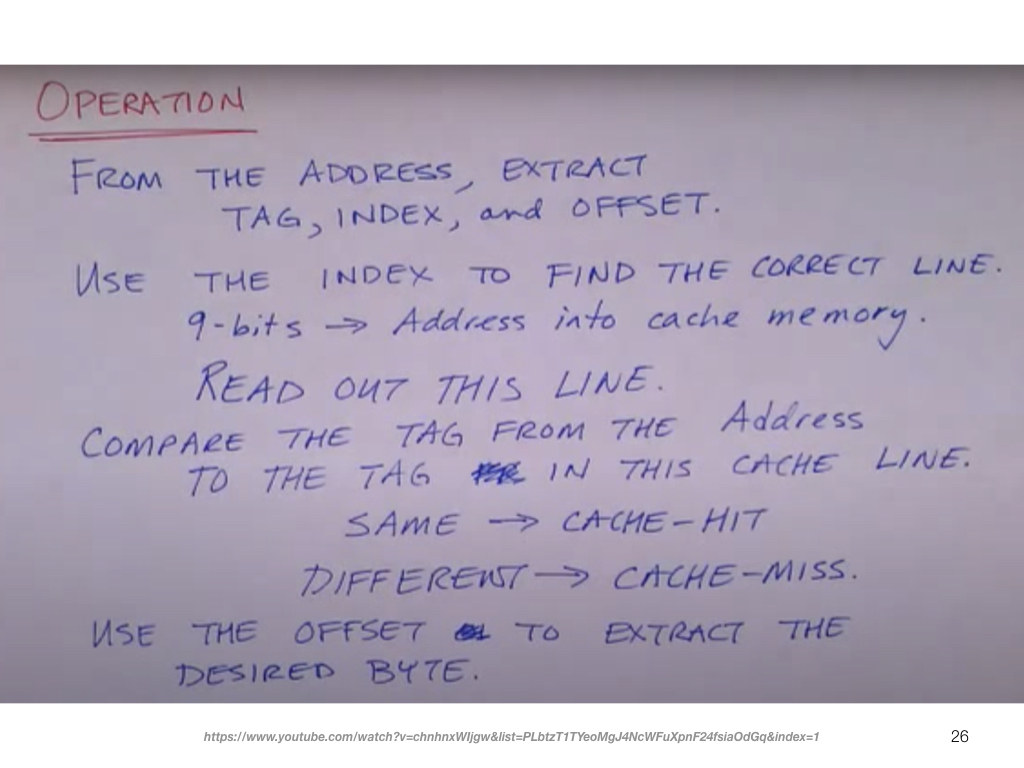 OPERATION
FROM THE ADDRESS, EXTRACT
TAG, INDEX, and OFFSET.
USE THE INDEX TO FIND THE CORRECT LINE.
9-bits → Address into cache memory.
READ OUT THIS LINE.
COMPARE THE TAG FROM THE Address
TO THE TAG IN THIS CACHE LINE.
SAME → CACHE-HIT
DIFFERENT → CACHE-MISS.
USE THE OFFSET TO EXTRACT THE
DESIRED BYTE.
https://www.youtube.com/watch?v=chnhnxWIjgw&list=PLbtzT1TYeoMgJ4NcWFuXpnF24fsiaOdGq&index=1
26